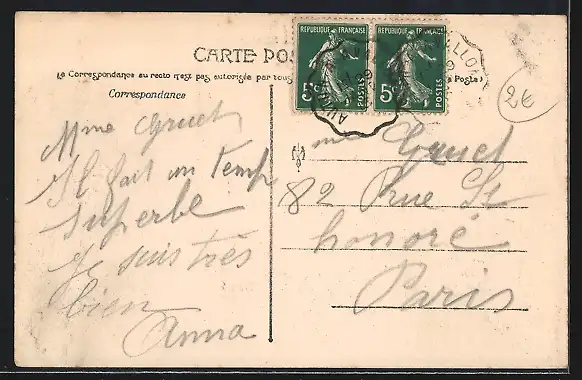 CARTE POS
La Correspondance au recto n'est pas autorisée par tous
a Poste)
Correspondance
RÉPUBLIQUE FRANÇAISE
5c
POSTES
RÉPUBLIQUE FRANÇAISE
5c
POSTES
2€
Mme Gruet
Il fait un Temp
superbe
Je suis très
bien
Anna
me Gruet
82 Rue St
honoré
Paris